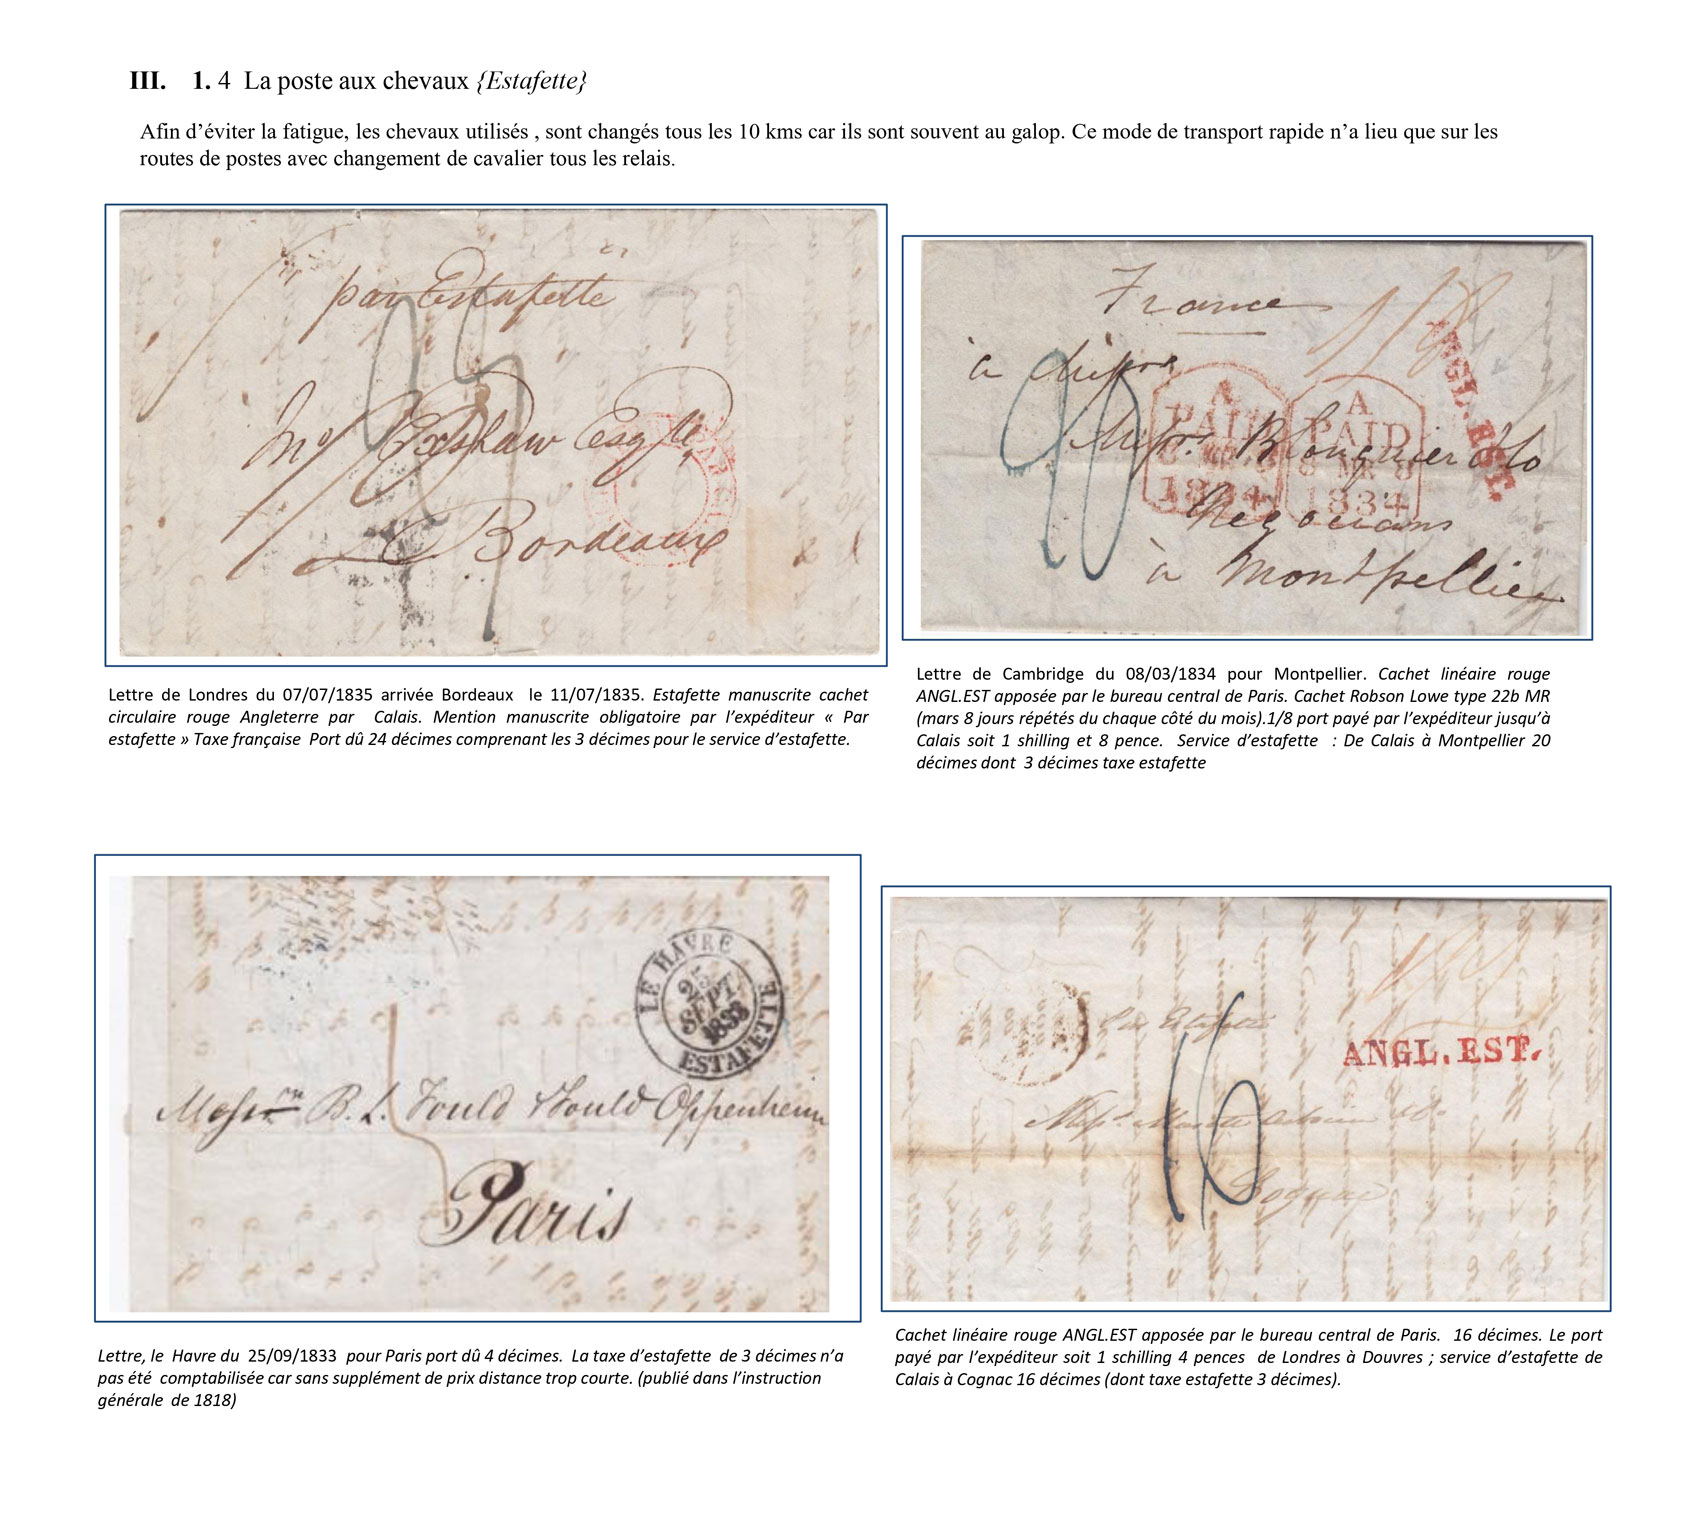 III. 1. 4 La poste aux chevaux {Estafette}
Afin d’éviter la fatigue, les chevaux utilisés , sont changés tous les 10 kms car ils sont souvent au galop. Ce mode de transport rapide n’a lieu que sur les
routes de postes avec changement de cavalier tous les relais.
par Estafette
Exshaw Esqre
Bordeaux
Lettre de Londres du 07/07/1835 arrivée Bordeaux le 11/07/1835. Estafette manuscrite cachet
circulaire rouge Angleterre par Calais. Mention manuscrite obligatoire par l’expéditeur « Par
estafette » Taxe française Port dû 24 décimes comprenant les 3 décimes pour le service d’estafette.
France
1/8
ANGL.EST.
à
20
A
PAID
8 MR 8
1834
A
PAID
8 MR 8
1834
à Montpellier
Lettre de Cambridge du 08/03/1834 pour Montpellier. Cachet linéaire rouge
ANGL.EST apposée par le bureau central de Paris. Cachet Robson Lowe type 22b MR
(mars 8 jours répétés du chaque côté du mois).1/8 port payé par l’expéditeur jusqu’à
Calais soit 1 shilling et 8 pence. Service d’estafette : De Calais à Montpellier 20
décimes dont 3 décimes taxe estafette
LE HAVRE
25
SEPT
1833
ESTAFETTE
B. L. Fould & Fould Oppenheim
Paris
Lettre, le Havre du 25/09/1833 pour Paris port dû 4 décimes. La taxe d’estafette de 3 décimes n’a
pas été comptabilisée car sans supplément de prix distance trop courte. (publié dans l’instruction
générale de 1818)
Par Estafette
ANGL.EST.
16
Cognac
Cachet linéaire rouge ANGL.EST apposée par le bureau central de Paris. 16 décimes. Le port
payé par l’expéditeur soit 1 schilling 4 pences de Londres à Douvres ; service d’estafette de
Calais à Cognac 16 décimes (dont taxe estafette 3 décimes).